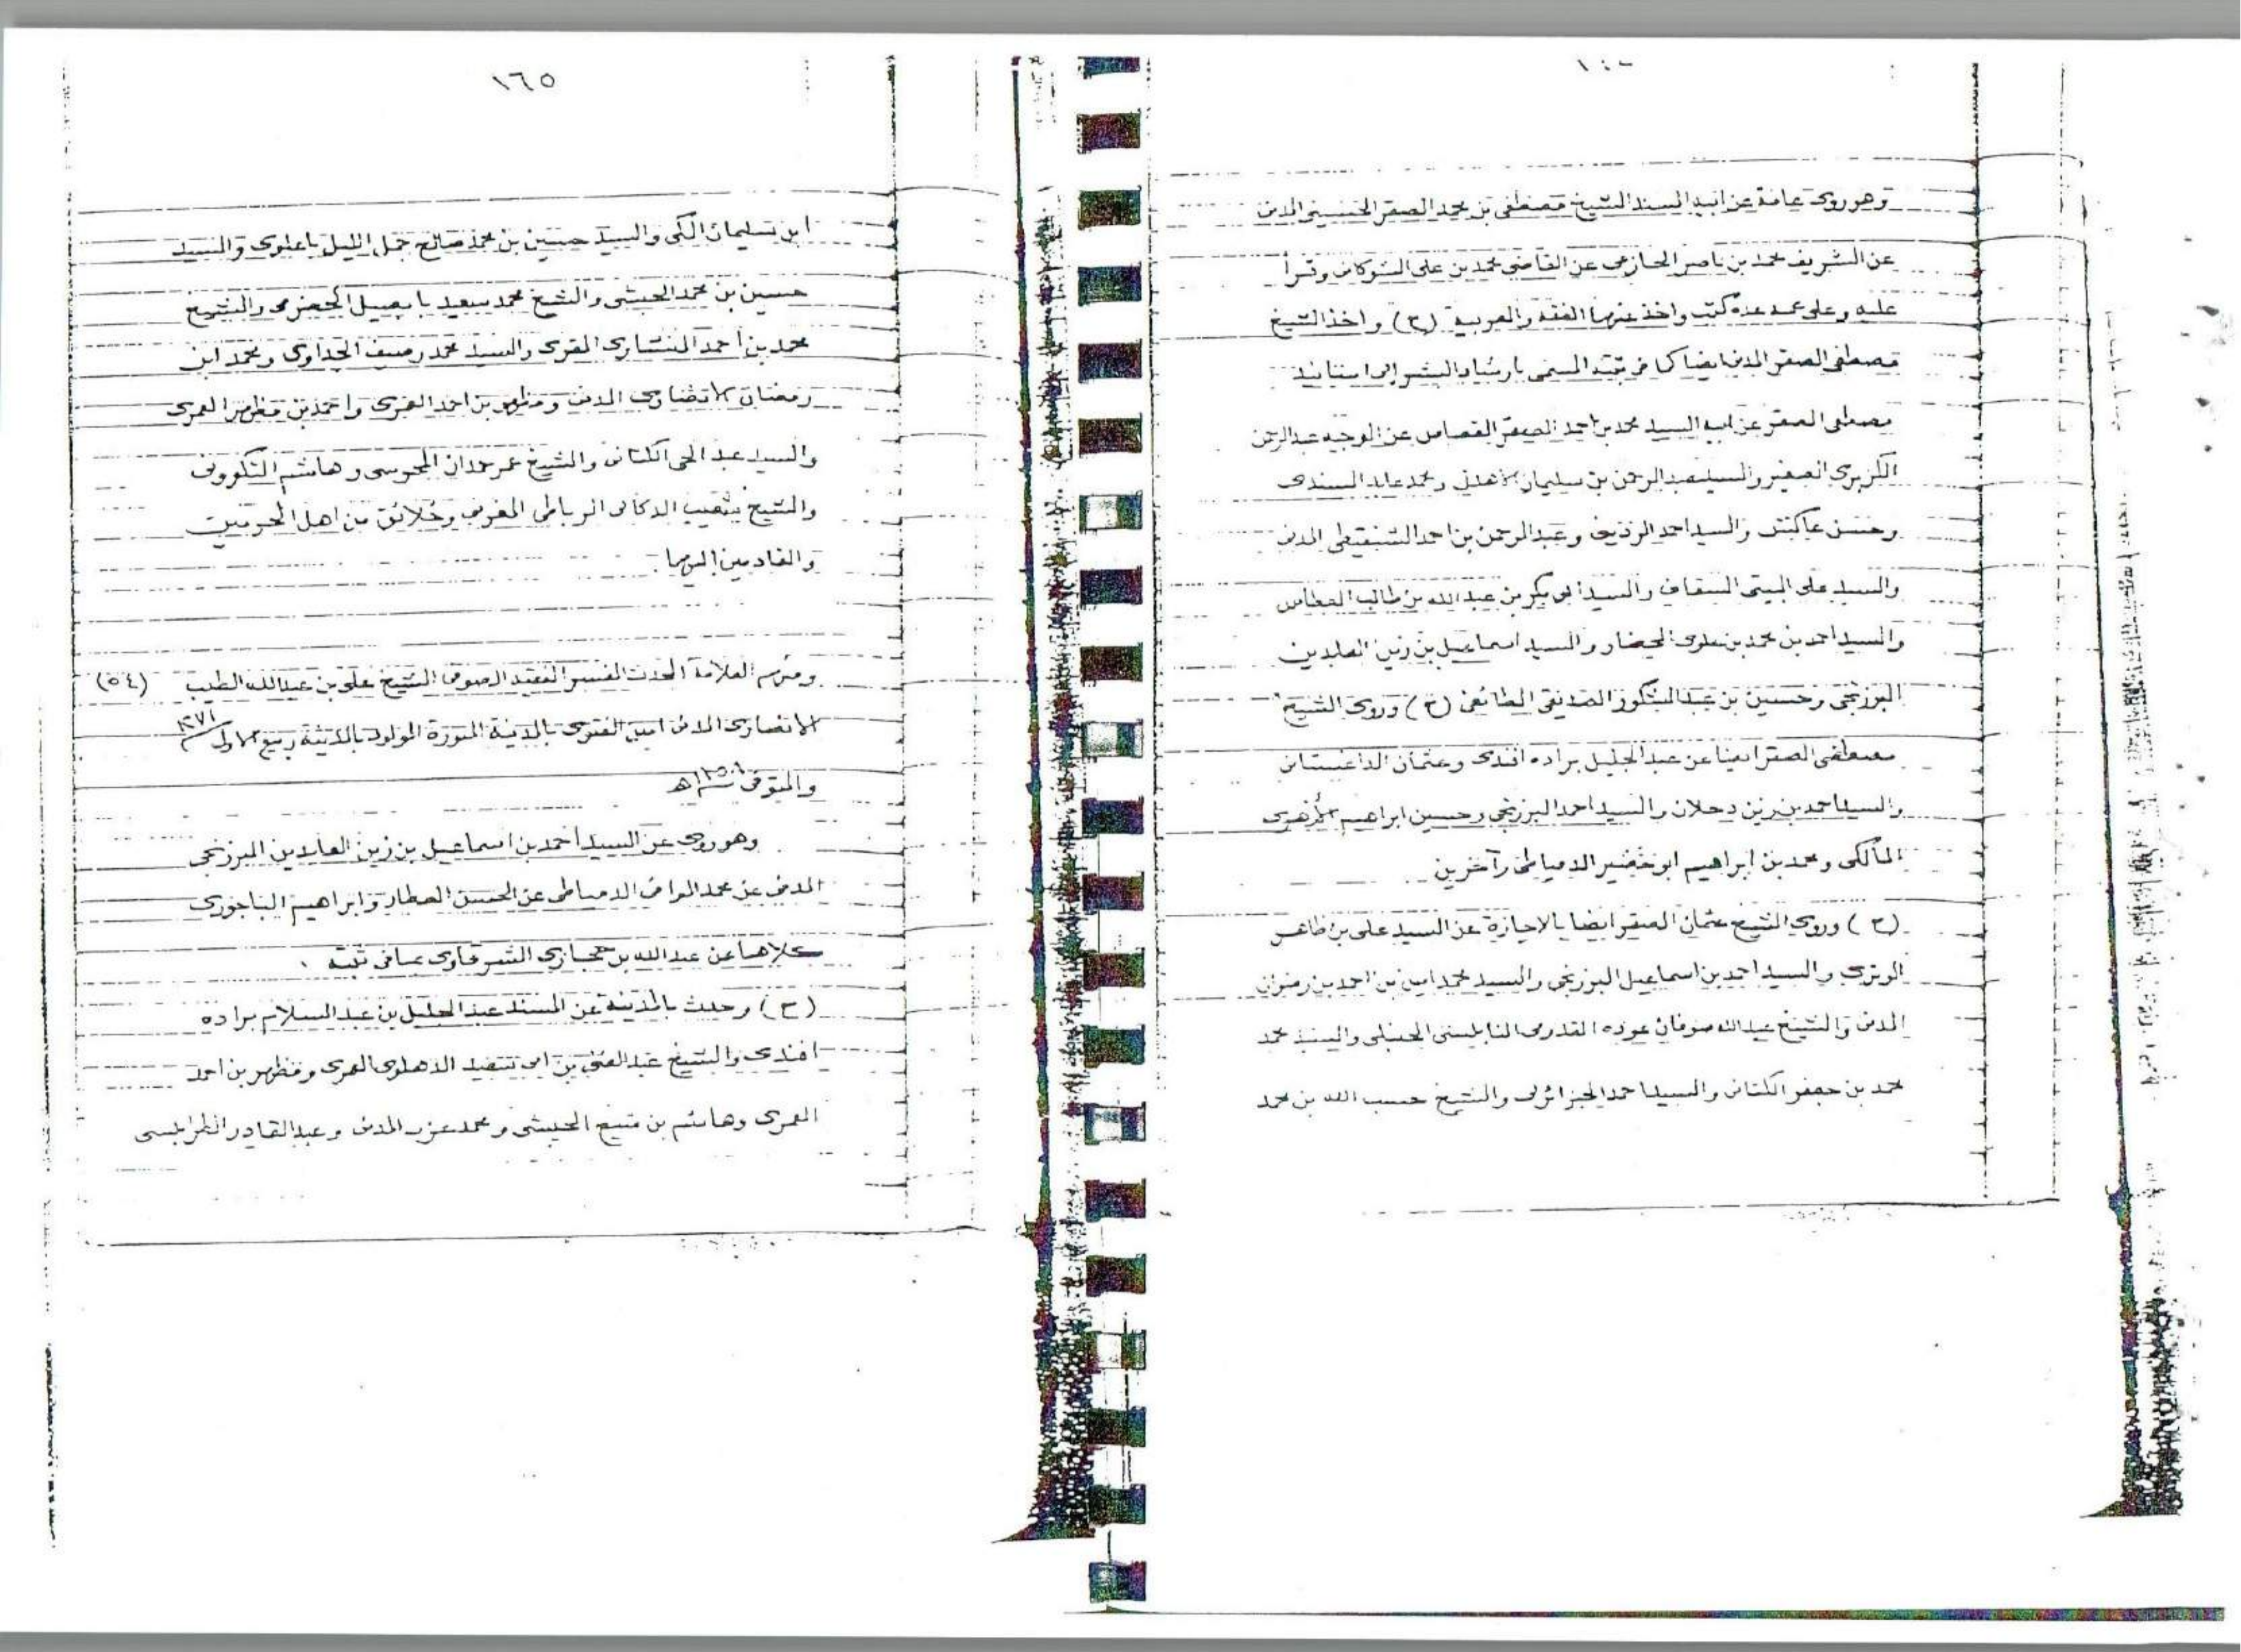 وهو روى عامة عن ابيه المسند الشيخ مصطفى بن محمد الصقر الحسيني المدنى
عن الشريف محمد بن ناصر الحازمى عن القاضى محمد بن على الشوكانى وقرأ
عليه وعلى عمه عدة كتب واخذ عنهما الفقه والعربية (ح) واخذ الشيخ
مصطفى الصقر المدنى ايضا كما فى ثبته المسمى بارشاد البشر الى اسانيد
مصطفى الصقر عن ابيه السيد محمد بن احمد الصقر عن الوجيه عبد الرحمن
الكزبرى الصغير والسيد عبد الرحمن بن سليمان الاهدل ومحمد عابد السندى
وحسن عاكش والسيد احمد الرديف وعبد الرحمن بن احمد الشنقيطى المدنى
والسيد على البيتى السقاف والسيد ابى بكر بن عبد الله بن طالب العطاس
والسيد احمد بن محمد بن علوى المحضار والسيد اسماعيل بن زين العابدين
البرزنجى وحسين بن عبد الشكور الصديقى الطائفى (ح) وروى الشيخ
مصطفى الصقر ايضا عن عبد الجليل براده افندى وعثمان الداغستانى
والسيد احمد بن زين دحلان والسيد احمد البرزنجى وحسين ابراهيم الازهرى
المالكى ومحمد بن ابراهيم ابو خضير الدمياطى وآخرين
(ح) وروى الشيخ عثمان الصقر ايضا بالاجازة عن السيد على بن ظاهر
الوترى والسيد احمد بن اسماعيل البرزنجى والسيد محمد امين بن احمد بن رضوان
المدنى والشيخ عبد الله صوفان عوده القدومى النابلسى الحنبلى والسيد محمد
محمد بن جعفر الكتانى والسيد احمد الجزائرلى والشيخ حسب الله بن محمد
١٦٥
ابن سليمان المكى والسيد حسين بن محمد صالح جمل الليل باعلوى والسيد
حسين بن محمد الحبشى والشيخ محمد سعيد بابصيل الحضرمى والشيخ
محمد بن احمد المقرى والسيد محمد ابن
رمضان المدنى ومظهر بن احمد العمرى واحمد بن مظهر العمرى
والسيد عبد الحى الكتانى والشيخ عمر حمدان المحرسى وهاشم
والشيخ شعيب الدكالى الرباطى المغربى وخلائق من اهل الحرمين
والقادمين اليهما .
ومنهم العلامة المحدث المفسر الفقيه الصوفى الشيخ على بن عبد الله الطيب (٥٤)
الانصارى المدنى امين الفتوى بالمدينة المنورة المولود بالمدينة ربيع الاول
والمتوفى هـ
وهو روى عن السيد احمد بن اسماعيل بن زين العابدين البرزنجى
المدنى عن محمد الموافى الدمياطى عن الحسن العطار وابراهيم الباجورى
كلاهما عن عبد الله بن حجازى الشرقاوى بما فى ثبته .
(ح) وحدث بالمدينة عن المسند عبد الجليل بن عبد السلام براده
افندى والشيخ عبد الغنى بن ابى سعيد الدهلوى العمرى ومظهر بن احمد
العمرى وهاشم بن الحبشى ومحمد عزب المدنى وعبد القادر الطرابلسى